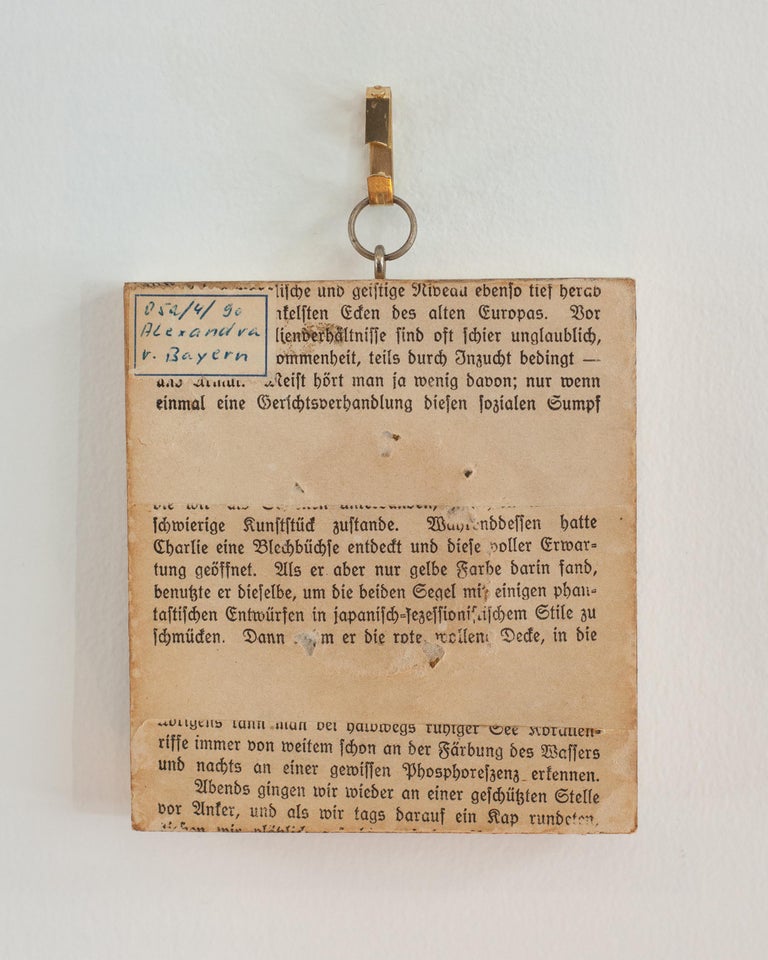 052/4/90
Alexandra
v. Bayern
lische und geistige Niveau ebenso tief herab
nkelsten Ecken des alten Europas. Vor
lienverhältnisse sind oft schier unglaublich,
ommenheit, teils durch Inzucht bedingt —
Meist hört man ja wenig davon; nur wenn
einmal eine Gerichtsverhandlung diesen sozialen Sumpf
schwierige Kunststück zustande. Währenddessen hatte
Charlie eine Blechbüchse entdeckt und diese voller Erwar-
tung geöffnet. Als er aber nur gelbe Farbe darin fand,
benutzte er dieselbe, um die beiden Segel mit einigen phan-
tastischen Entwürfen in japanisch-sezessionistischem Stile zu
schmücken. Dann nahm er die rote wollene Decke, in die
übrigens kann man bei halbwegs ruhiger See Korallen-
riffe immer von weitem schon an der Färbung des Wassers
und nachts an einer gewissen Phosphoreszenz erkennen.
Abends gingen wir wieder an einer geschützten Stelle
vor Anker, und als wir tags darauf ein Kap rundeten,